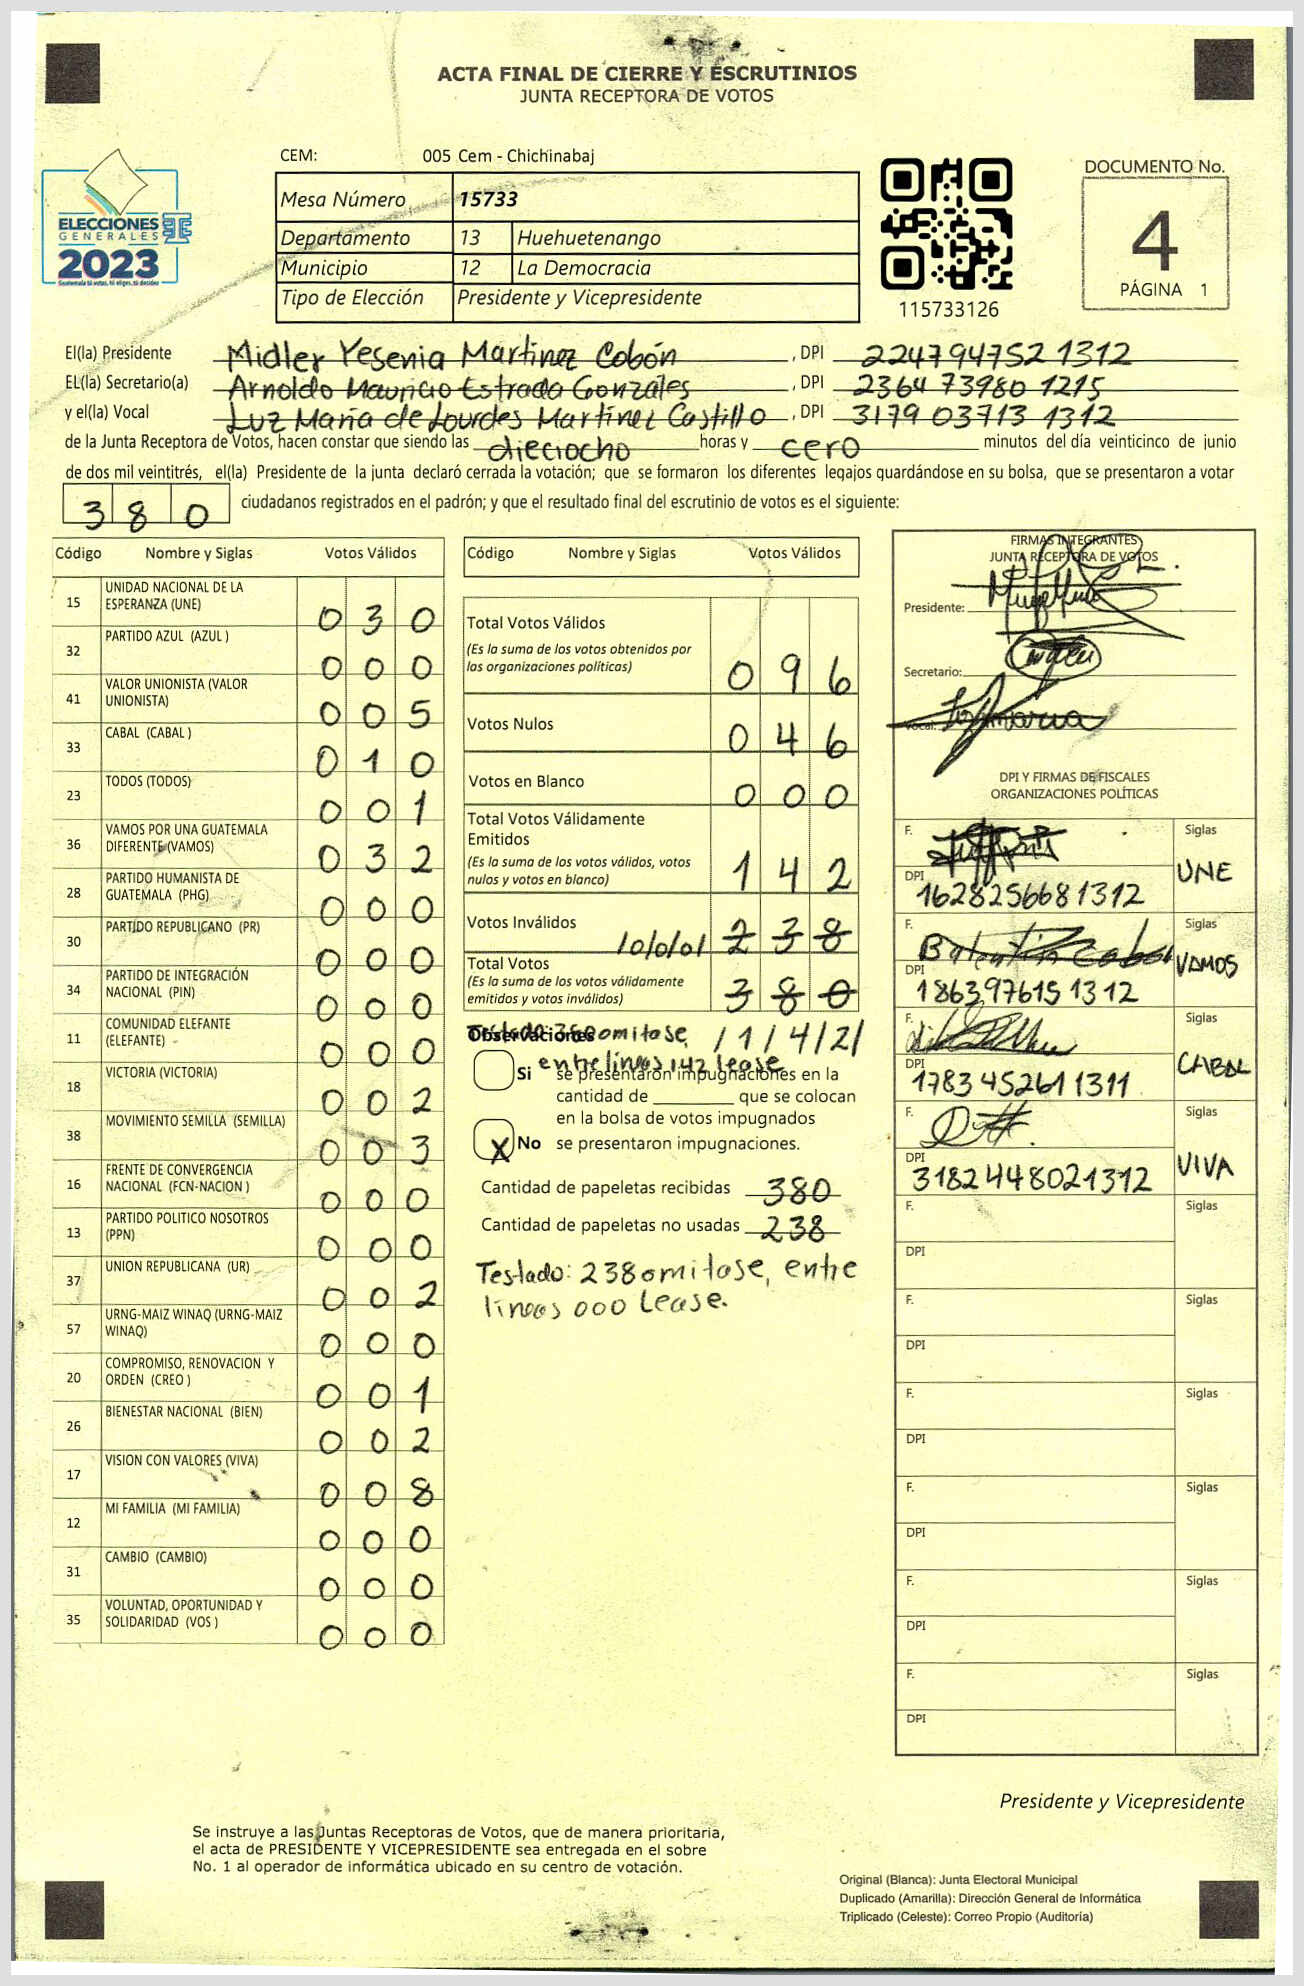 ACTA FINAL DE CIERRE Y ESCRUTINIOS
JUNTA RECEPTORA DE VOTOS
CEM: 005 Cem - Chichinabaj
ELECCIONES
GENERALES
2023
Guatemala tú votas, tú eliges, tú decides
Mesa Número 15733
Departamento 13 Huehuetenango
Municipio 12 La Democracia
Tipo de Elección Presidente y Vicepresidente
115733126
DOCUMENTO No.
4
PÁGINA 1
El(la) Presidente Midler Yesenia Martinez Cobón , DPI 224794752 1312
EL(la) Secretario(a) Arnoldo Mauricio Estrada Gonzales , DPI 2364 73980 1215
y el(la) Vocal Luz Maria de Lourdes Martinez Castillo , DPI 3179 03713 1312
de la Junta Receptora de Votos, hacen constar que siendo las dieciocho horas y cero minutos del día veinticinco de junio
de dos mil veintitrés, el(la) Presidente de la junta declaró cerrada la votación; que se formaron los diferentes legajos quardándose en su bolsa, que se presentaron a votar
3 8 0 ciudadanos registrados en el padrón; y que el resultado final del escrutinio de votos es el siguiente:
Código Nombre y Siglas Votos Válidos
15 UNIDAD NACIONAL DE LA
ESPERANZA (UNE) 0 3 0
32 PARTIDO AZUL (AZUL ) 0 0 0
41 VALOR UNIONISTA (VALOR
UNIONISTA) 0 0 5
33 CABAL (CABAL ) 0 1 0
23 TODOS (TODOS) 0 0 1
36 VAMOS POR UNA GUATEMALA
DIFERENTE (VAMOS) 0 3 2
28 PARTIDO HUMANISTA DE
GUATEMALA (PHG) 0 0 0
30 PARTIDO REPUBLICANO (PR) 0 0 0
34 PARTIDO DE INTEGRACIÓN
NACIONAL (PIN) 0 0 0
11 COMUNIDAD ELEFANTE
(ELEFANTE) 0 0 0
18 VICTORIA (VICTORIA) 0 0 2
38 MOVIMIENTO SEMILLA (SEMILLA) 0 0 3
16 FRENTE DE CONVERGENCIA
NACIONAL (FCN-NACION ) 0 0 0
13 PARTIDO POLITICO NOSOTROS
(PPN) 0 0 0
37 UNION REPUBLICANA (UR) 0 0 2
57 URNG-MAIZ WINAQ (URNG-MAIZ
WINAQ) 0 0 0
20 COMPROMISO, RENOVACION Y
ORDEN (CREO ) 0 0 1
26 BIENESTAR NACIONAL (BIEN) 0 0 2
17 VISION CON VALORES (VIVA) 0 0 8
12 MI FAMILIA (MI FAMILIA) 0 0 0
31 CAMBIO (CAMBIO) 0 0 0
35 VOLUNTAD, OPORTUNIDAD Y
SOLIDARIDAD (VOS ) 0 0 0
Código Nombre y Siglas Votos Válidos
Total Votos Válidos
(Es la suma de los votos obtenidos por
las organizaciones políticas) 0 9 6
Votos Nulos 0 4 6
Votos en Blanco 0 0 0
Total Votos Válidamente
Emitidos
(Es la suma de los votos válidos, votos
nulos y votos en blanco) 1 4 2
Votos Inválidos /0/0/0/ 2 3 8
Total Votos
(Es la suma de los votos válidamente
emitidos y votos inválidos) 3 8 0
Testado 380 omitase, /1/4/2/
Observaciones
entre lineas 142 lease
Si se presentaron impugnaciones en la
cantidad de ________ que se colocan
en la bolsa de votos impugnados
X No se presentaron impugnaciones.
Cantidad de papeletas recibidas 380
Cantidad de papeletas no usadas 238
Testado: 238 omitase, entre
lineas 000 Lease.
FIRMAS INTEGRANTES
JUNTA RECEPTORA DE VOTOS
Presidente:
Secretario:
Vocal:
DPI Y FIRMAS DE FISCALES
ORGANIZACIONES POLÍTICAS
F. Siglas
DPI 1628256681312 UNE
F. Siglas
DPI 186397615 1312 VAMOS
F. Siglas
DPI 1783 45261 1311 CABAL
F. Siglas
DPI 3182448021312 VIVA
F. Siglas
DPI
F. Siglas
DPI
F. Siglas
DPI
F. Siglas
DPI
F. Siglas
DPI
F. Siglas
DPI
Presidente y Vicepresidente
Se instruye a las Juntas Receptoras de Votos, que de manera prioritaria,
el acta de PRESIDENTE Y VICEPRESIDENTE sea entregada en el sobre
No. 1 al operador de informática ubicado en su centro de votación.
Original (Blanca): Junta Electoral Municipal
Duplicado (Amarilla): Dirección General de Informática
Triplicado (Celeste): Correo Propio (Auditoría)